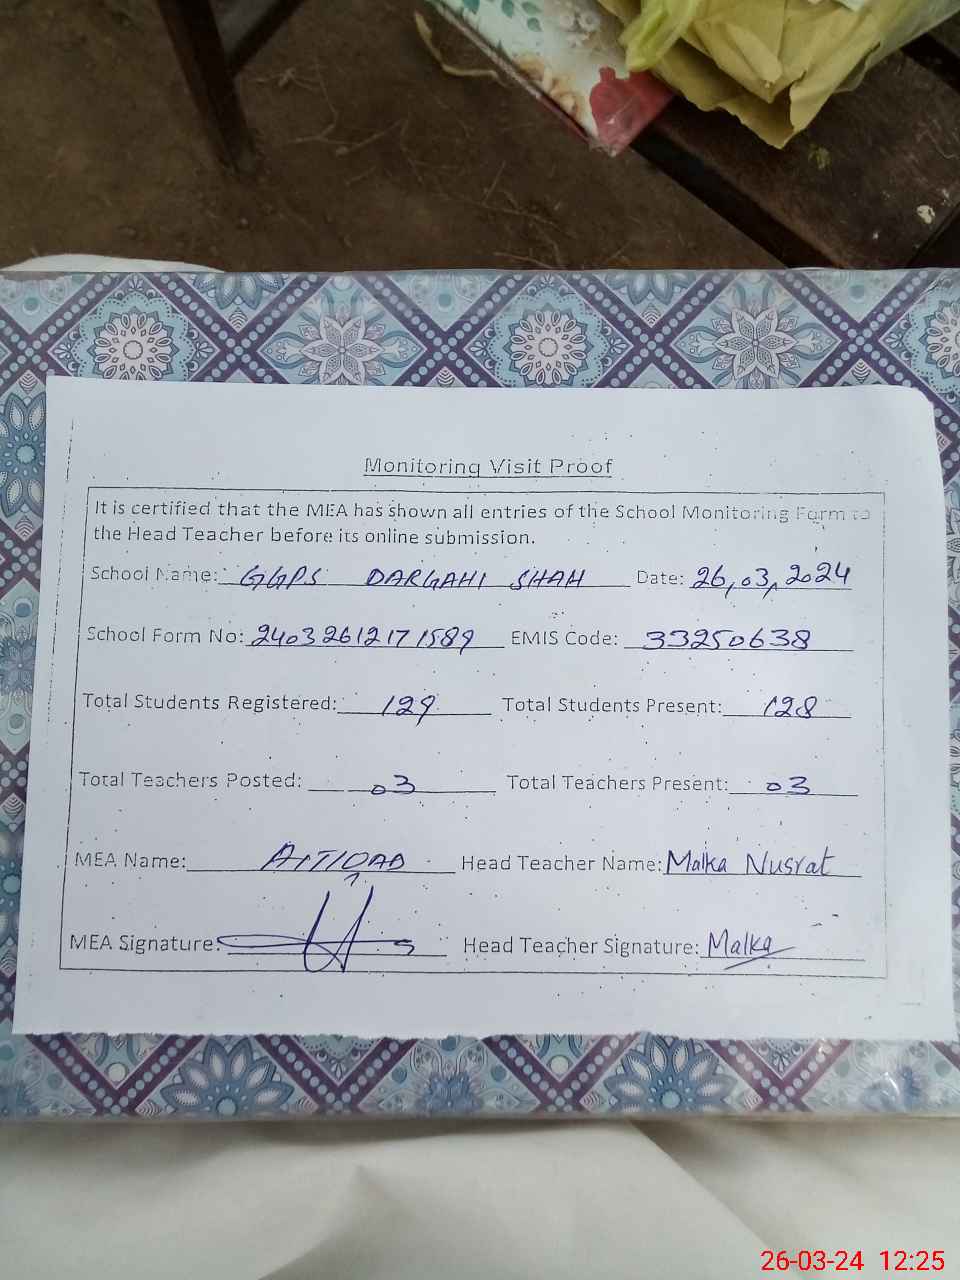 Monitoring Visit Proof
It is certified that the MEA has shown all entries of the School Monitoring Form to
the Head Teacher before its online submission.
School Name: GGPS DARGAHI SHAH Date: 26,03,2024
School Form No: 24032612171589 EMIS Code: 33250638
Total Students Registered: 129 Total Students Present: 128
Total Teachers Posted: 03 Total Teachers Present: 03
MEA Name: Head Teacher Name: Malka Nusrat
MEA Signature: Head Teacher Signature: Malka
26-03-24 12:25